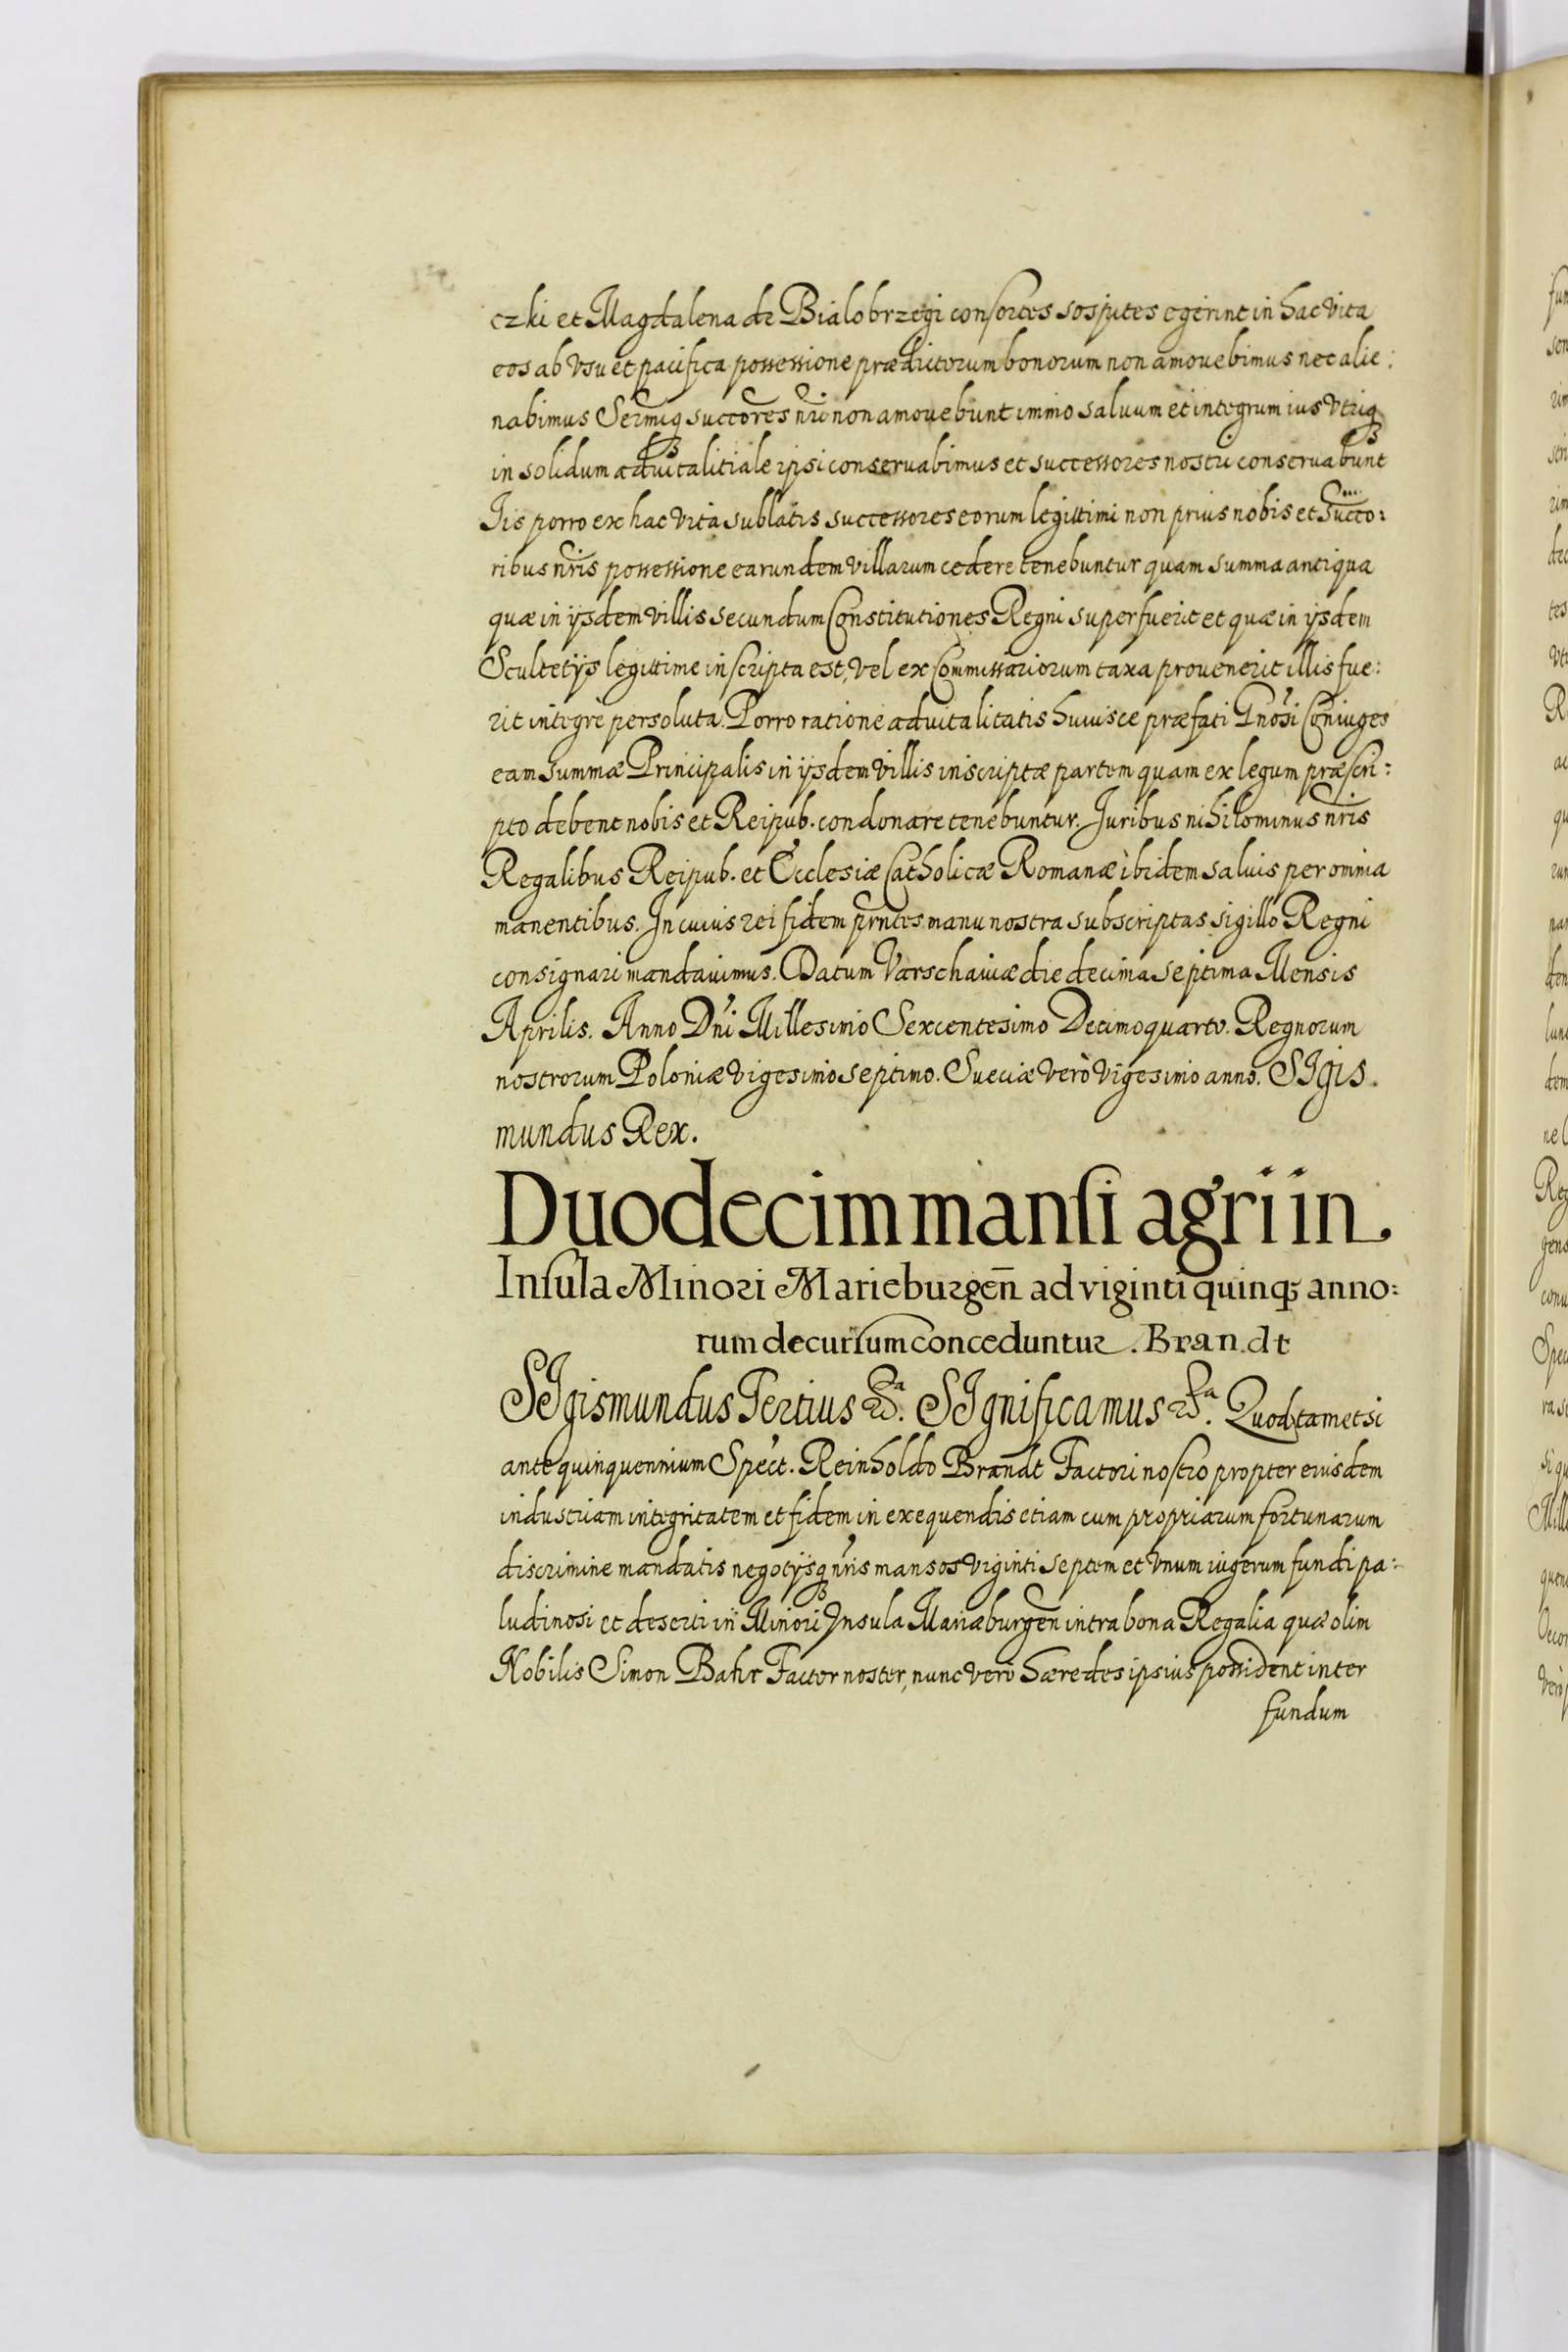 czki et Magdalena de Bialobrzegi consortes sospites egerint in hac vita
eos ab vsu et pacifica possessione prædictorum bonorum non amouebimus nec alie:
nabimus Sermiq succores nri non amouebunt immo saluum et integrum ius vtriq
in solidum aduitalitiale ipsi conseruabimus et successores nostri conseruabunt
Iis porro ex hac vita sublatis successores eorum legittimi non prius nobis et Succo:
ribus nris possessione earundem villarum cedere tenebuntur quam summa antiqua
quæ in ijsdem villis secundum Constitutiones Regni superfuerit et quæ in ijsdem
Scultetijs legittime inscripta est, vel ex Commissariorum taxa prouenerit illis fue:
rit integre persoluta. Porro ratione aduitalitatis huiusce præfati Gnosi Coniuges
eam summæ Principalis in ijsdem villis inscriptæ partem quam ex legum præscri:
pto debent nobis et Reipub. condonare tenebuntur. Iuribus nihilominus nris
Regalibus Reipub. et Ecclesiæ Catholicæ Romanæ ibidem saluis per omnia
manentibus. In cuius rei fidem prntes manu nostra subscriptas sigillo Regni
consignari mandauimus. Datum Varschauiæ die decima septima Mensis
Aprilis. Anno Dni Millesimo Sexcentesimo Decimoquarto. Regnorum
nostrorum Poloniæ vigesimo septimo. Sueciæ verò vigesimo anno. SIgis.
mundus Rex.
Duodecim mansi agri in
Insula Minori Marieburgen̄ ad viginti quinq; anno:
rum decursum conceduntur. Brandt
SIgismundus Tertius &a. SIgnificamus &a. Quod tametsi
ante quinquennium Spect. Reinholdo Brandt Factori nostro propter eiusdem
industriam integritatem et fidem in exequendis etiam cum propriarum fortunarum
discrimine mandatis negotijsq nris mansos viginti septem et vnum iugerum fundi pa:
ludinosi et deserti in Minori Insula Mariæburgen intra bona Regalia quæ olim
Nobilis Simon Bahr Factor noster, nunc vero hæredes ipsius possident inter
fundum